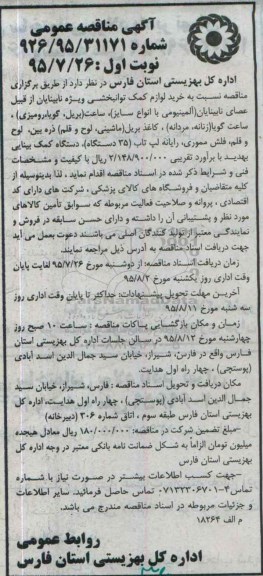 آگهی مناقصه عمومی
شماره ۹۲۶/۹۵/۳۱۱۷۱
نوبت اول :۹۵/۷/۲۶
اداره کل بهزیستی استان فارس در نظر دارد از طریق برگزاری
مناقصه نسبت به خرید لوازم کمک توانبخشی ویژه نابینایان از قبیل
عصای نابینایان(آلمینومی با انواع سایز)، ساعت(بریل، گویا،رومیزی) ،
ساعت گویا(زنانه، مردانه) ، کاغذ بریل(ماشینی، لوح و قلم) ذره بین، لوح
و قلم، فلش مموری، رایانه لپ تاب (۳۵ دستگاه)، دستگاه کمک بینایی
بهدید با برآورد تقریبی ۲/۱۴۸/۹۰۰/۰۰۰ ریال با کیفیت و مشخصات
فنی و شرایط ذکر شده در اسناد مناقصه اقدام نماید ، لذا بدینوسیله از
کلیه متقاضیان و فروشگاه های کالای پزشکی ، شرکت های دارای کد
اقتصادی ، پروانه و صلاحیت فعالیت مربوطه که سوابق تأمین کالاهای
مورد نظر و پشتیبانی آن را داشته و دارای حسن سابقه در فروش و
نمایندگی معتبر از تولید کنندگان اصلی می باشند دعوت بعمل می آید
جهت دریافت اسناد مناقصه به آدرس ذیل مراجعه نمایند.
زمان دریافت اسناد مناقصه: از دوشنبه مورخ ۹۵/۷/۲۶ لغایت پایان
وقت اداری روز یکشنبه مورخ ۹۵/۸/۲
آخرین مهلت تحویل پیشنهادات: حداکثر تا پایان وقت اداری روز
سه شنبه مورخ ۹۵/۸/۱۱
زمان و مکان بازگشایی پاکات مناقصه : ساعت ۱۰ صبح روز
چهارشنبه مورخ ۹۵/۸/۱۲ در سالن جلسات اداره کل بهزیستی استان
فارس واقع در فارس، شیراز، خیابان سید جمال الدین اسد آبادی
(پوستچی) ، چهار راه اول هدایت.
مکان دریافت و تحویل اسناد مناقصه : فارس، شیراز، خیابان سید
جمال الدین اسد آبادی (پوستچی) ، چهار راه اول هدایت، اداره کل
بهزیستی استان فارس طبقه سوم ، اتاق شماره ۳۰۶ (دبیرخانه)
-مبلغ تضمین شرکت در مناقصه: ۱۸۰/۰۰۰/۰۰۰ ریال معادل هیجده
میلیون تومان الزاماً به شکل ضمانت نامه بانکی معتبر در وجه اداره کل
بهزیستی استان فارس
-جهت کسب اطلاعات بیشتر در صورت نیاز با شماره
تماس ۴-۰۷۱۳۲۳۰۶۷۰۱ تماس حاصل فرمائید. سایر اطلاعات و
جزئیات مربوطه در اسناد مناقصه مندرج می باشد.
م الف ۱۸۲۶۴
روابط عمومی
اداره کل بهزیستی استان فارس